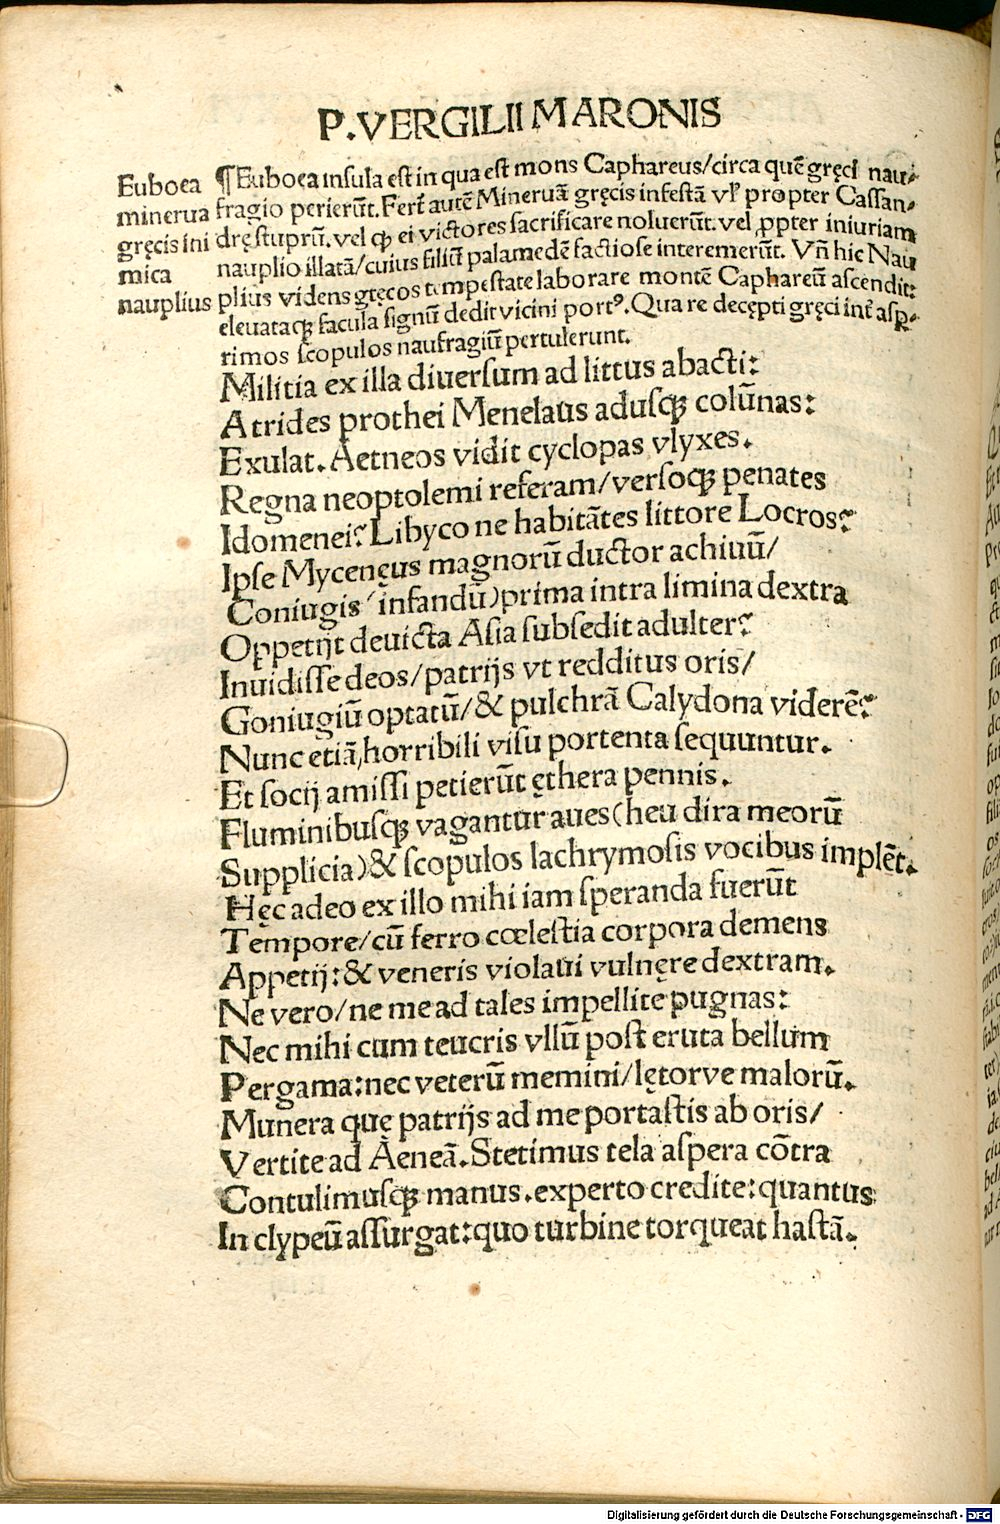 P. VERGILII MARONIS
Euboea
minerua
gręcis ini
mica
nauplius
¶Euboea insula est in qua est mons Caphareus/circa quē gręci nau⸗
fragio perierūt. Fert̃ autē Mineruā gręcis infestā vľ propter Cassan⸗
drę stuprū. vel ꝙ ei victores sacrificare noluerūt. vel ꝓpter iniuriam
nauplio illatā/cuius filiū palamedē factiose interemerūt. Vñ hic Nau
plius videns gręcos tempestate laborare montē Caphareū ascendit:
eleuataqꝫ facula signū dedit vicini portꝰ. Qua re decępti gręci int̃ asꝑ⸗
rimos scopulos naufragiū pertulerunt.
Militia ex illa diuersum ad littus abacti:
Atrides prothei Menelaus adusqꝫ colūnas:
Exulat. Aetneos vidit cyclopas vlyxes.
Regna neoptolemi referam/versoqꝫ penates
Idomenei? Libyco ne habitātes littore Locros?
Ipse Mycenęus magnorū ductor achiuū/
Coniugis (infandū) prima intra limina dextra
Oppetijt deuicta Asia subsedit adulter?
Inuidisse deos/patrijs vt redditus oris/
Goniugiū optatū/& pulchrā Calydona viderē?
Nunc etiā, horribili visu portenta sequuntur.
Et socij amissi petierūt ęthera pennis.
Fluminibusqꝫ vagantur aues (heu dira meorū
Supplicia) & scopulos lachrymosis vocibus implēt.
Hęc adeo ex illo mihi iam speranda fuerūt
Tempore/cū ferro cœlestia corpora demens
Appetij: & veneris violaui vulnęre dextram.
Ne vero/ne me ad tales impellite pugnas:
Nec mihi cum teucris vllū post eruta bellum
Pergama: nec veterū memini/lętorve malorū.
Munera quę patrijs ad me portastis ab oris/
Vertite ad Aeneā. Stetimus tela aspera cōtra
Contulimusqꝫ manus. experto credite: quantus
In clypeū assurgat: quo turbine torqueat hastā.
Digitalisierung gefördert durch die Deutsche Forschungsgemeinschaft - DFG